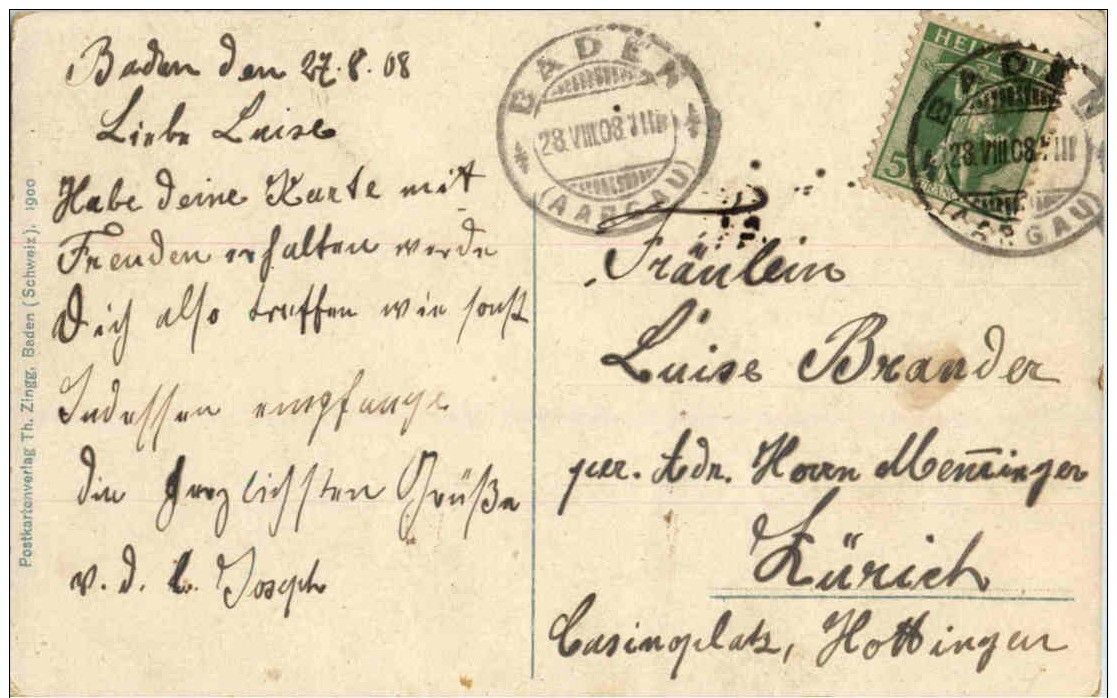 Baden den 27.8.08
Liebe Luise
Habe deine Karte mit
Freuden erhalten werde
Dich also treffen wie sonst
Indessen empfange
die herzlichsten Grüße
v. d. l. Joseph
Postkartenverlag Th. Zingg, Baden (Schweiz). 1900
BADEN
28.VIII.08. III
(AARGAU)
HELVETIA
5
FRANCO
BADEN
28.VIII.08. III
(AARGAU)
Fräulein
Luise Brander
per. Adr. Herrn Memminger
Zürich
Casinoplatz, Hottingen